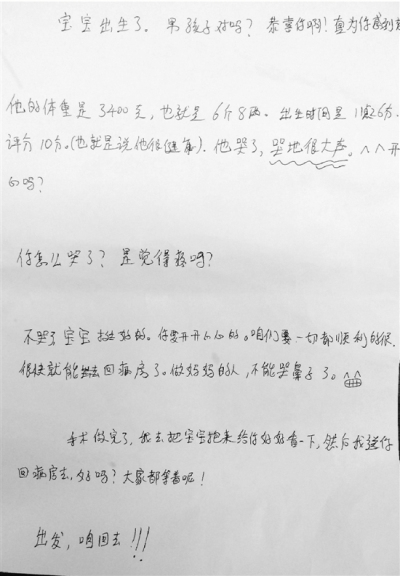 宝宝出生了。男孩子对吗？恭喜你啊！真为你高兴
他的体重是3400克，也就是6斤8两。出生时间是1点26分.
评分10分。(也就是说他很健康)．他哭了，哭地很大声。^^开
心吗？
你怎么哭了？是觉得疼吗？
不哭了宝宝挺好的。你要开开心心的。咱们要一切都顺利的很.
很快就能出去回病房了。做妈妈的人，不能哭鼻子了。^^
手术做完了，我去把宝宝抱来给你好好看一下，然后我送你
回病房去，好吗？大家都等着呢！
出发，咱回去！！！